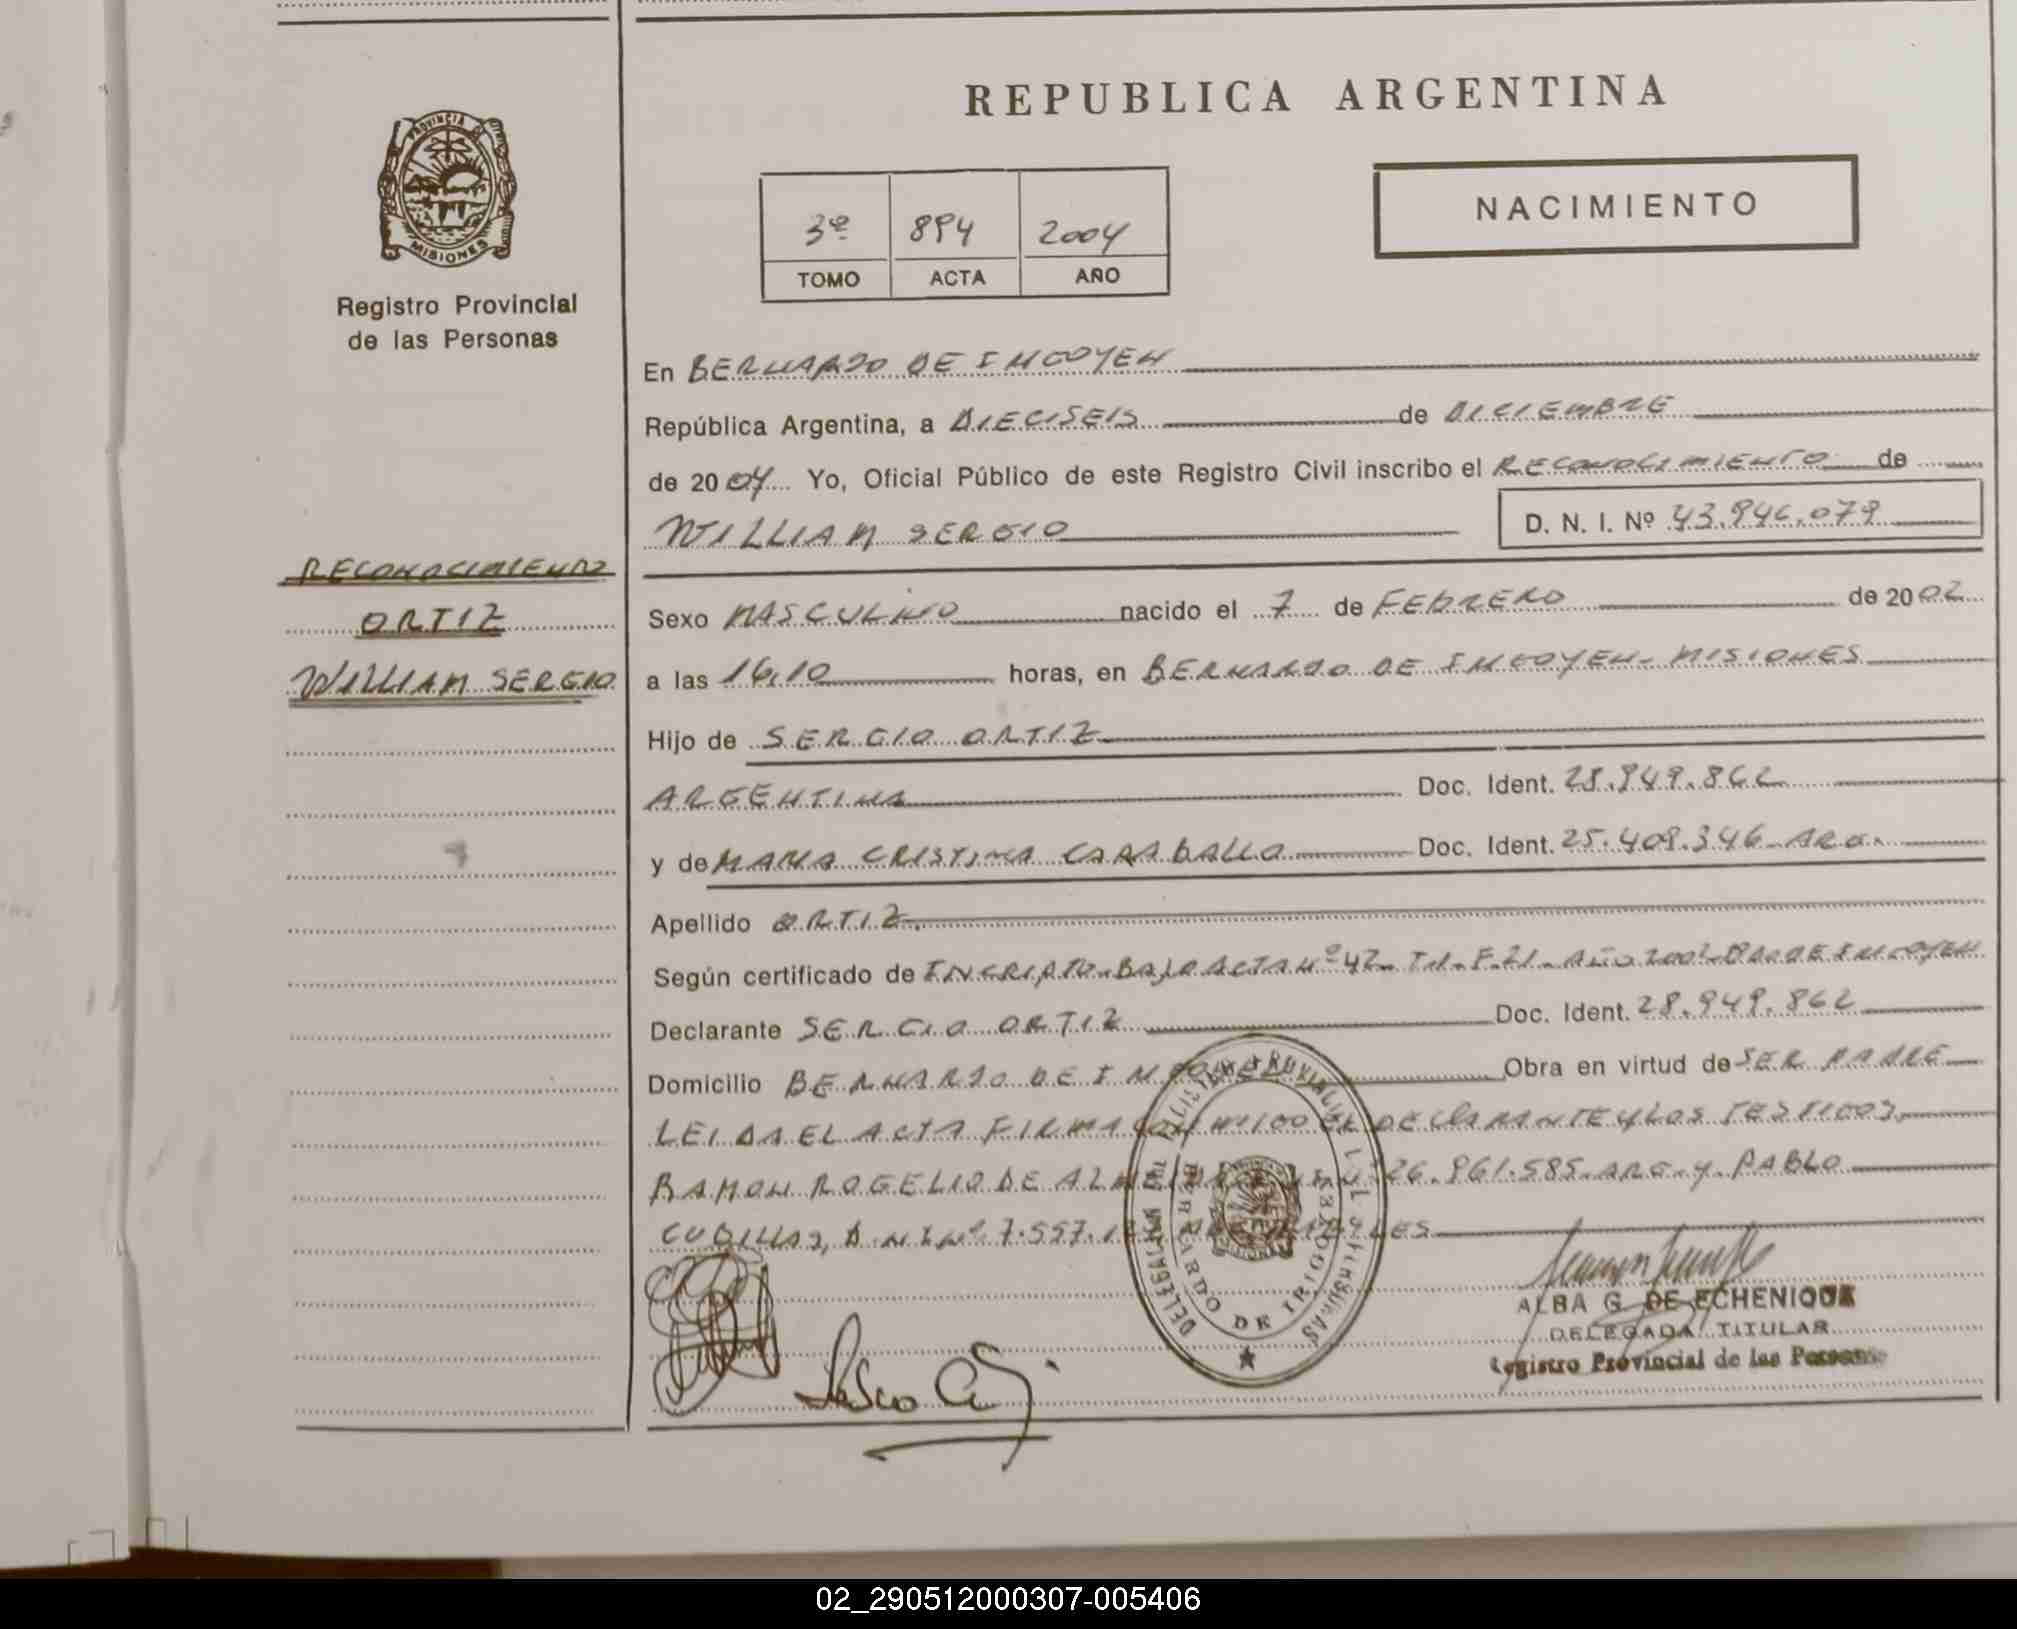 REPUBLICA ARGENTINA
PROVINCIA DE
MISIONES
Registro Provincial
de las Personas
3º 894 2004
TOMO ACTA AÑO
NACIMIENTO
En BERNARDO DE IRIGOYEN
República Argentina, a DIECISEIS de DICIEMBRE
de 2004 Yo, Oficial Público de este Registro Civil inscribo el RECONOCIMIENTO de
WILLIAM SERGIO
D. N. I. Nº 43.946.079
RECONOCIMIENTO
ORTIZ
WILLIAM SERGIO
Sexo MASCULINO nacido el 7 de FEBRERO de 2002
a las 16,10 horas, en BERNARDO DE IRIGOYEN- MISIONES
Hijo de SERGIO ORTIZ
ARGENTINA Doc. Ident. 28.949.862
y de MARIA CRISTINA CARABALLO Doc. Ident. 25.409.346- ARG.
Apellido ORTIZ
Según certificado de INCRIPTO BAJO ACTA Nº 42- T-1- F.21- AÑO 2002- DE IRIGOYEN
Declarante SERGIO ORTIZ Doc. Ident. 28.949.862
Domicilio BERNARDO DE IRIGOYEN Obra en virtud de SER PADRE
LEIDA EL ACTA FIRMA EL DECLARANTE Y LOS TESTIGOS,
RAMON ROGELIO DE 26.961.585- ARG- Y PABLO
CUBILLAS, D.N.I Nº 7.557.
DELEGACION DEL REGISTRO PROVINCIAL DE LAS PERSONAS
BERNARDO DE IRIGOYEN
ALBA G. DE ECHENIQUE
DELEGADA TITULAR
Registro Provincial de las Personas
02_290512000307-005406